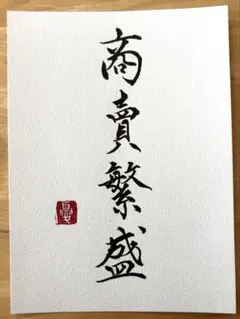 商賣繁盛